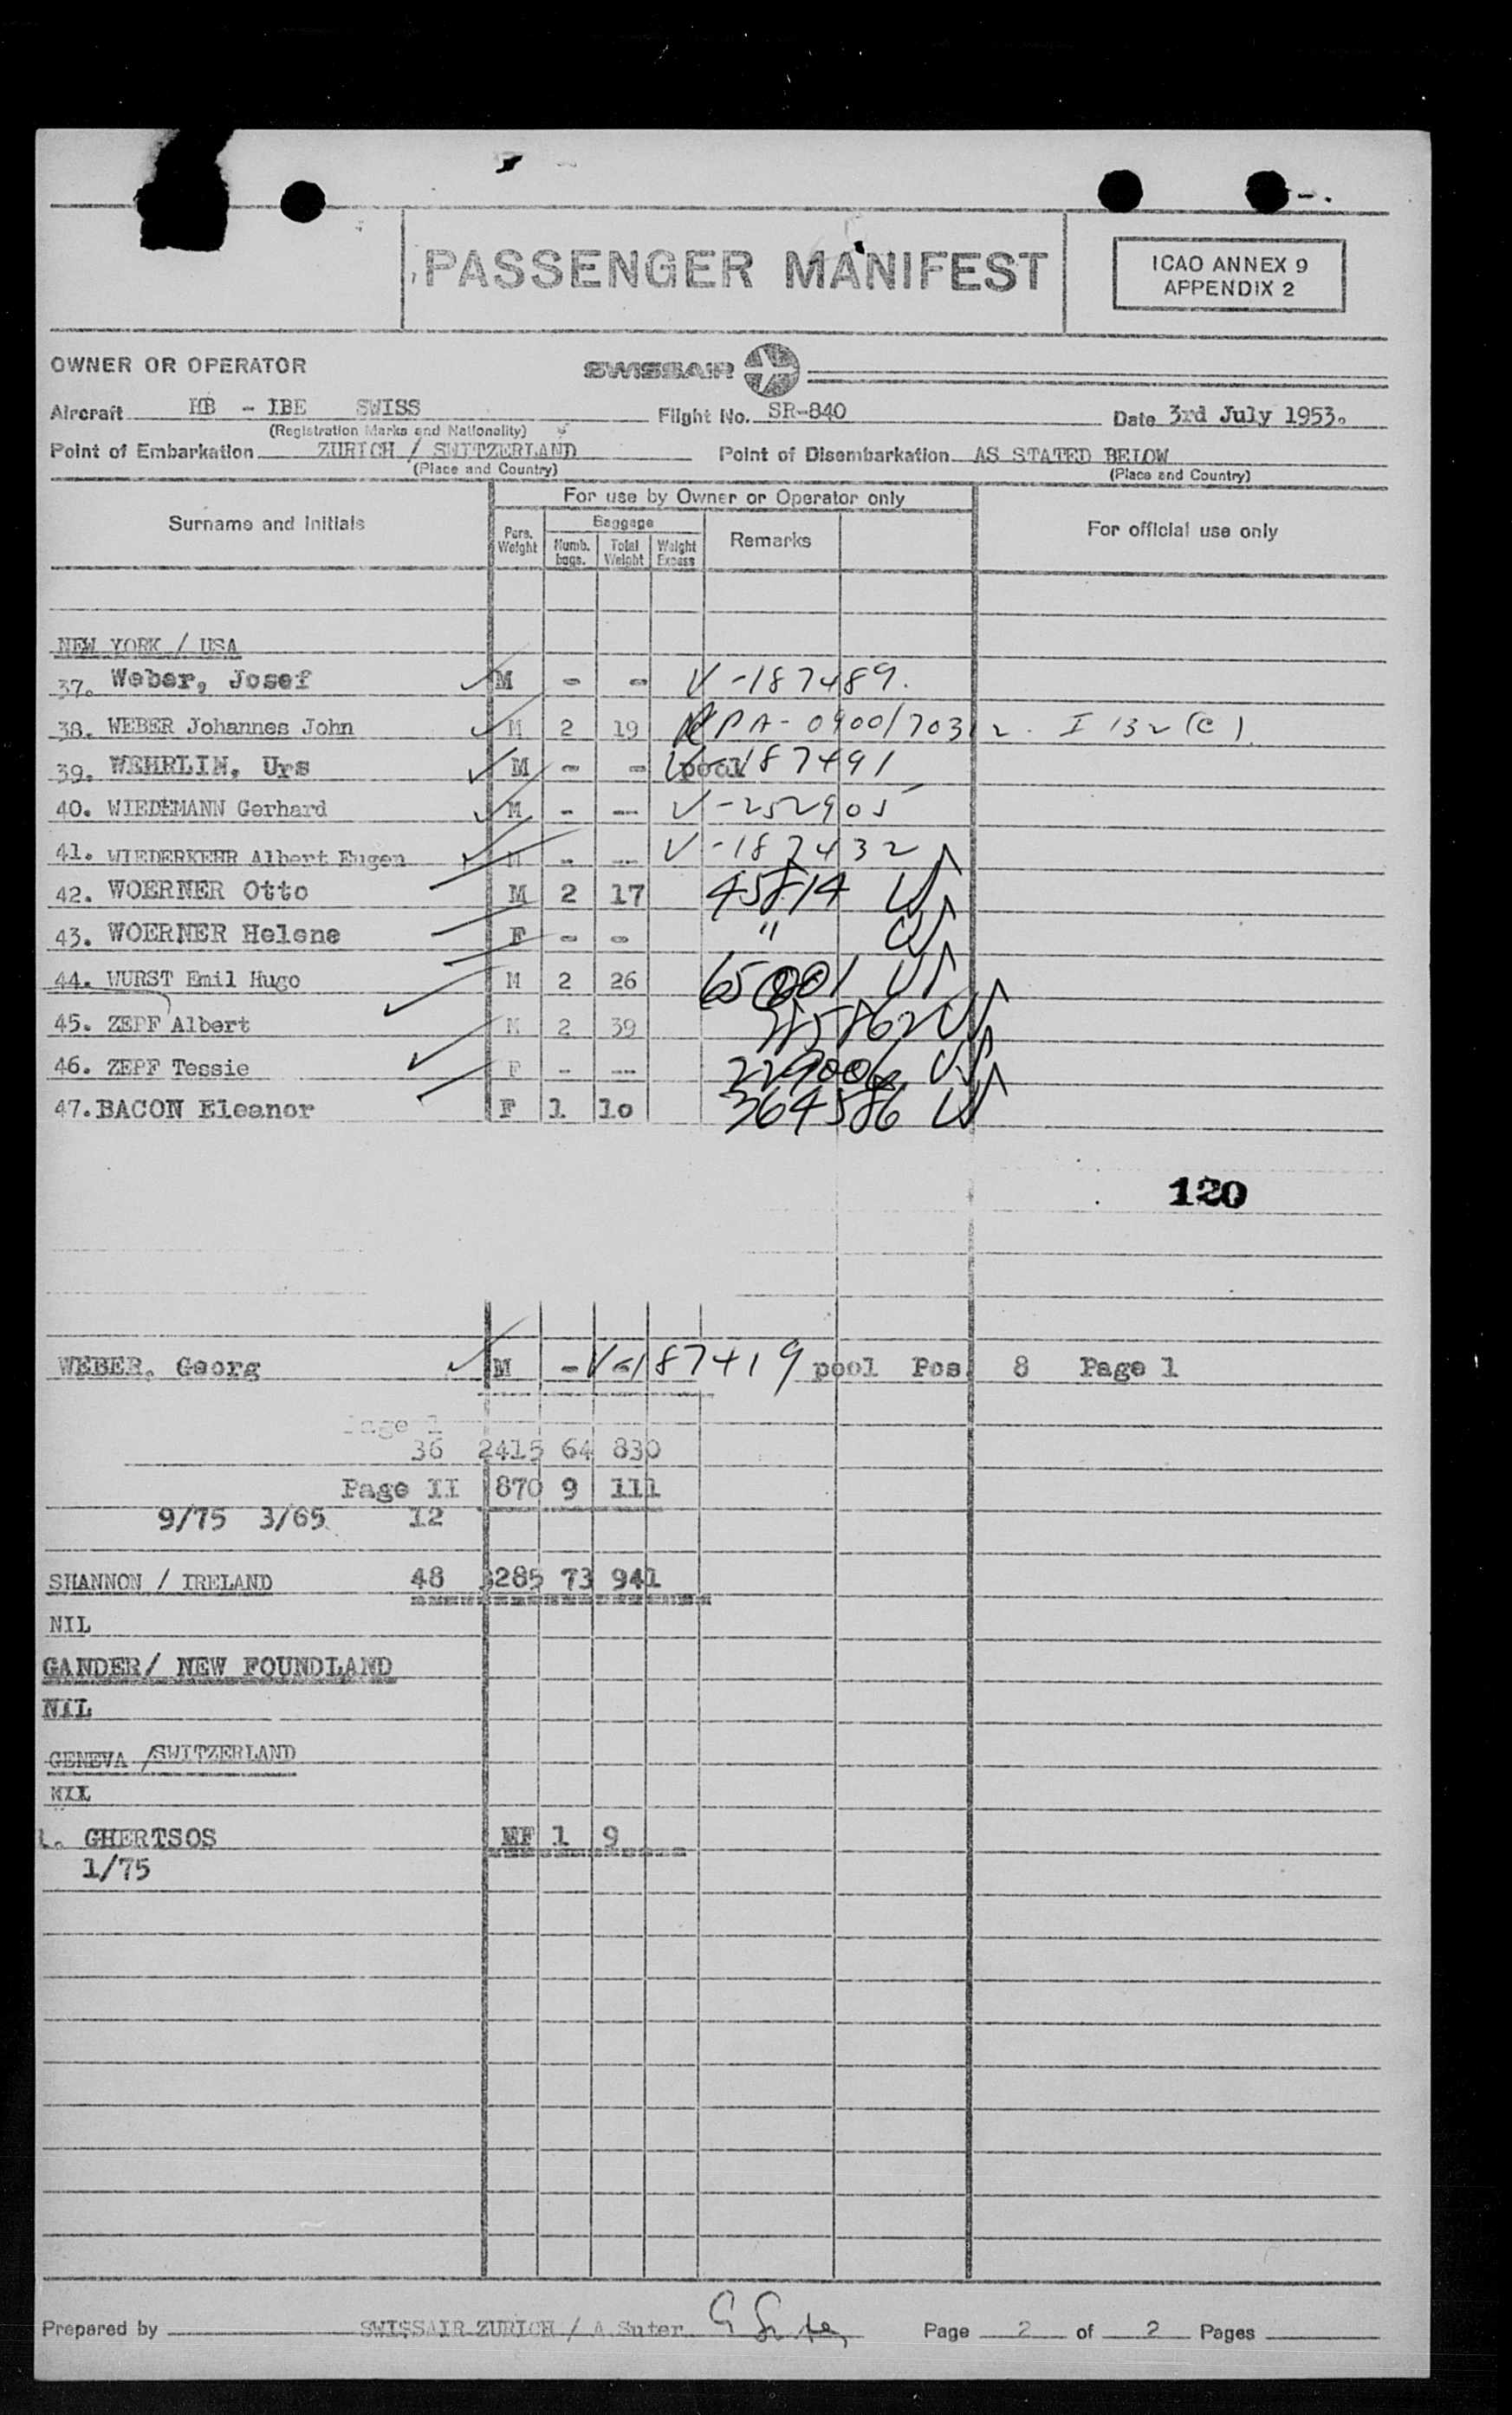 PASSENGER MANIFEST
ICAO ANNEX 9
APPENDIX 2
OWNER OR OPERATOR
SWISSAIR
Aircraft HB - IBE SWISS Flight No. SR-840 Date 3rd July 1953.
(Registration Marks and Nationality)
Point of Embarkation ZURICH / SWITZERLAND Point of Disembarkation AS STATED BELOW
(Place and Country) (Place and Country)
For use by Owner or Operator only
Surname and Initials Pers. Weight Baggage Numb. bags. Total Weight Weight Excess Remarks For official use only
NEW YORK / USA
37. Weber, Josef M - - V-187489.
38. WEBER Johannes John M 2 19 PA-0900/70312. I 132 (C)
39. WEHRLIN, Urs M - - pool V-187491
40. WIEDEMANN Gerhard M - -- V-252905
41. WIEDERKEHR Albert Eugen M - -- V-187432
42. WOERNER Otto M 2 17 45814 US
43. WOERNER Helene F - - " US
44. WURST Emil Hugo M 2 26 65001 US
45. ZEPF Albert M 2 39 US
46. ZEPF Tessie F - -- 229006 US
47. BACON Eleanor F 1 10 364586 US
120
WEBER, Georg M - V-187419 pool Pos. 8 Page 1
Page I
36 2415 64 830
Page II 870 9 111
9/75 3/65 12
SHANNON / IRELAND 48 3285 73 941
NIL
GANDER/ NEW FOUNDLAND
NIL
GENEVA /SWITZERLAND
NIL
1. GHERTSOS MF 1 9
1/75
Prepared by SWISSAIR ZURICH / A Suter Page 2 of 2 Pages